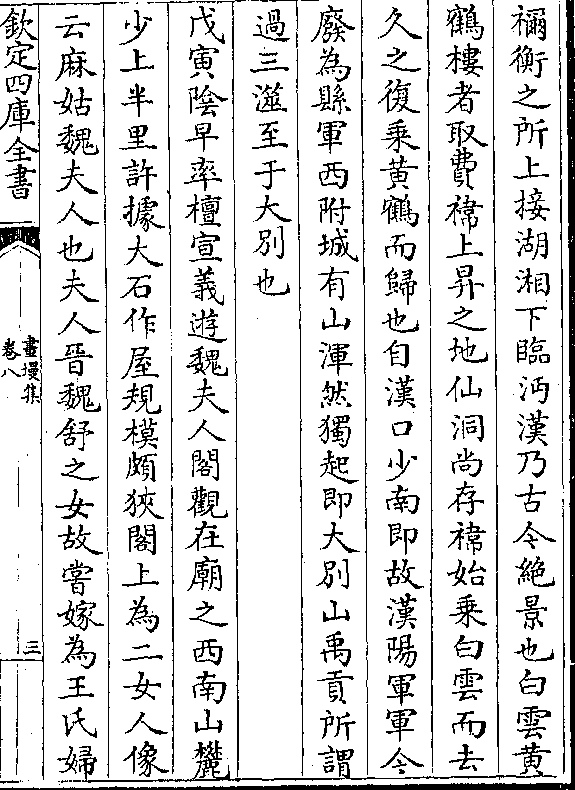 禰衡之所上接湖湘下臨沔漢乃古今絶景也白雲黄
鶴樓者取費禕上昇之地仙洞尚存禕始乗白雲而去
久之復乗黄鶴而歸也自漢口少南即故漢陽軍軍今
廢為縣軍西附城有山渾然獨起即大别山禹貢所謂
過三澨至于大别也
戊寅陰早率檀宣義遊魏夫人閣觀在廟之西南山麓
少上半里許據大石作屋規模頗狹閣上為二女人像
云麻姑魏夫人也夫人晉魏舒之女故嘗嫁為王氏婦
欽定四庫全書
畫墁集
卷八
三